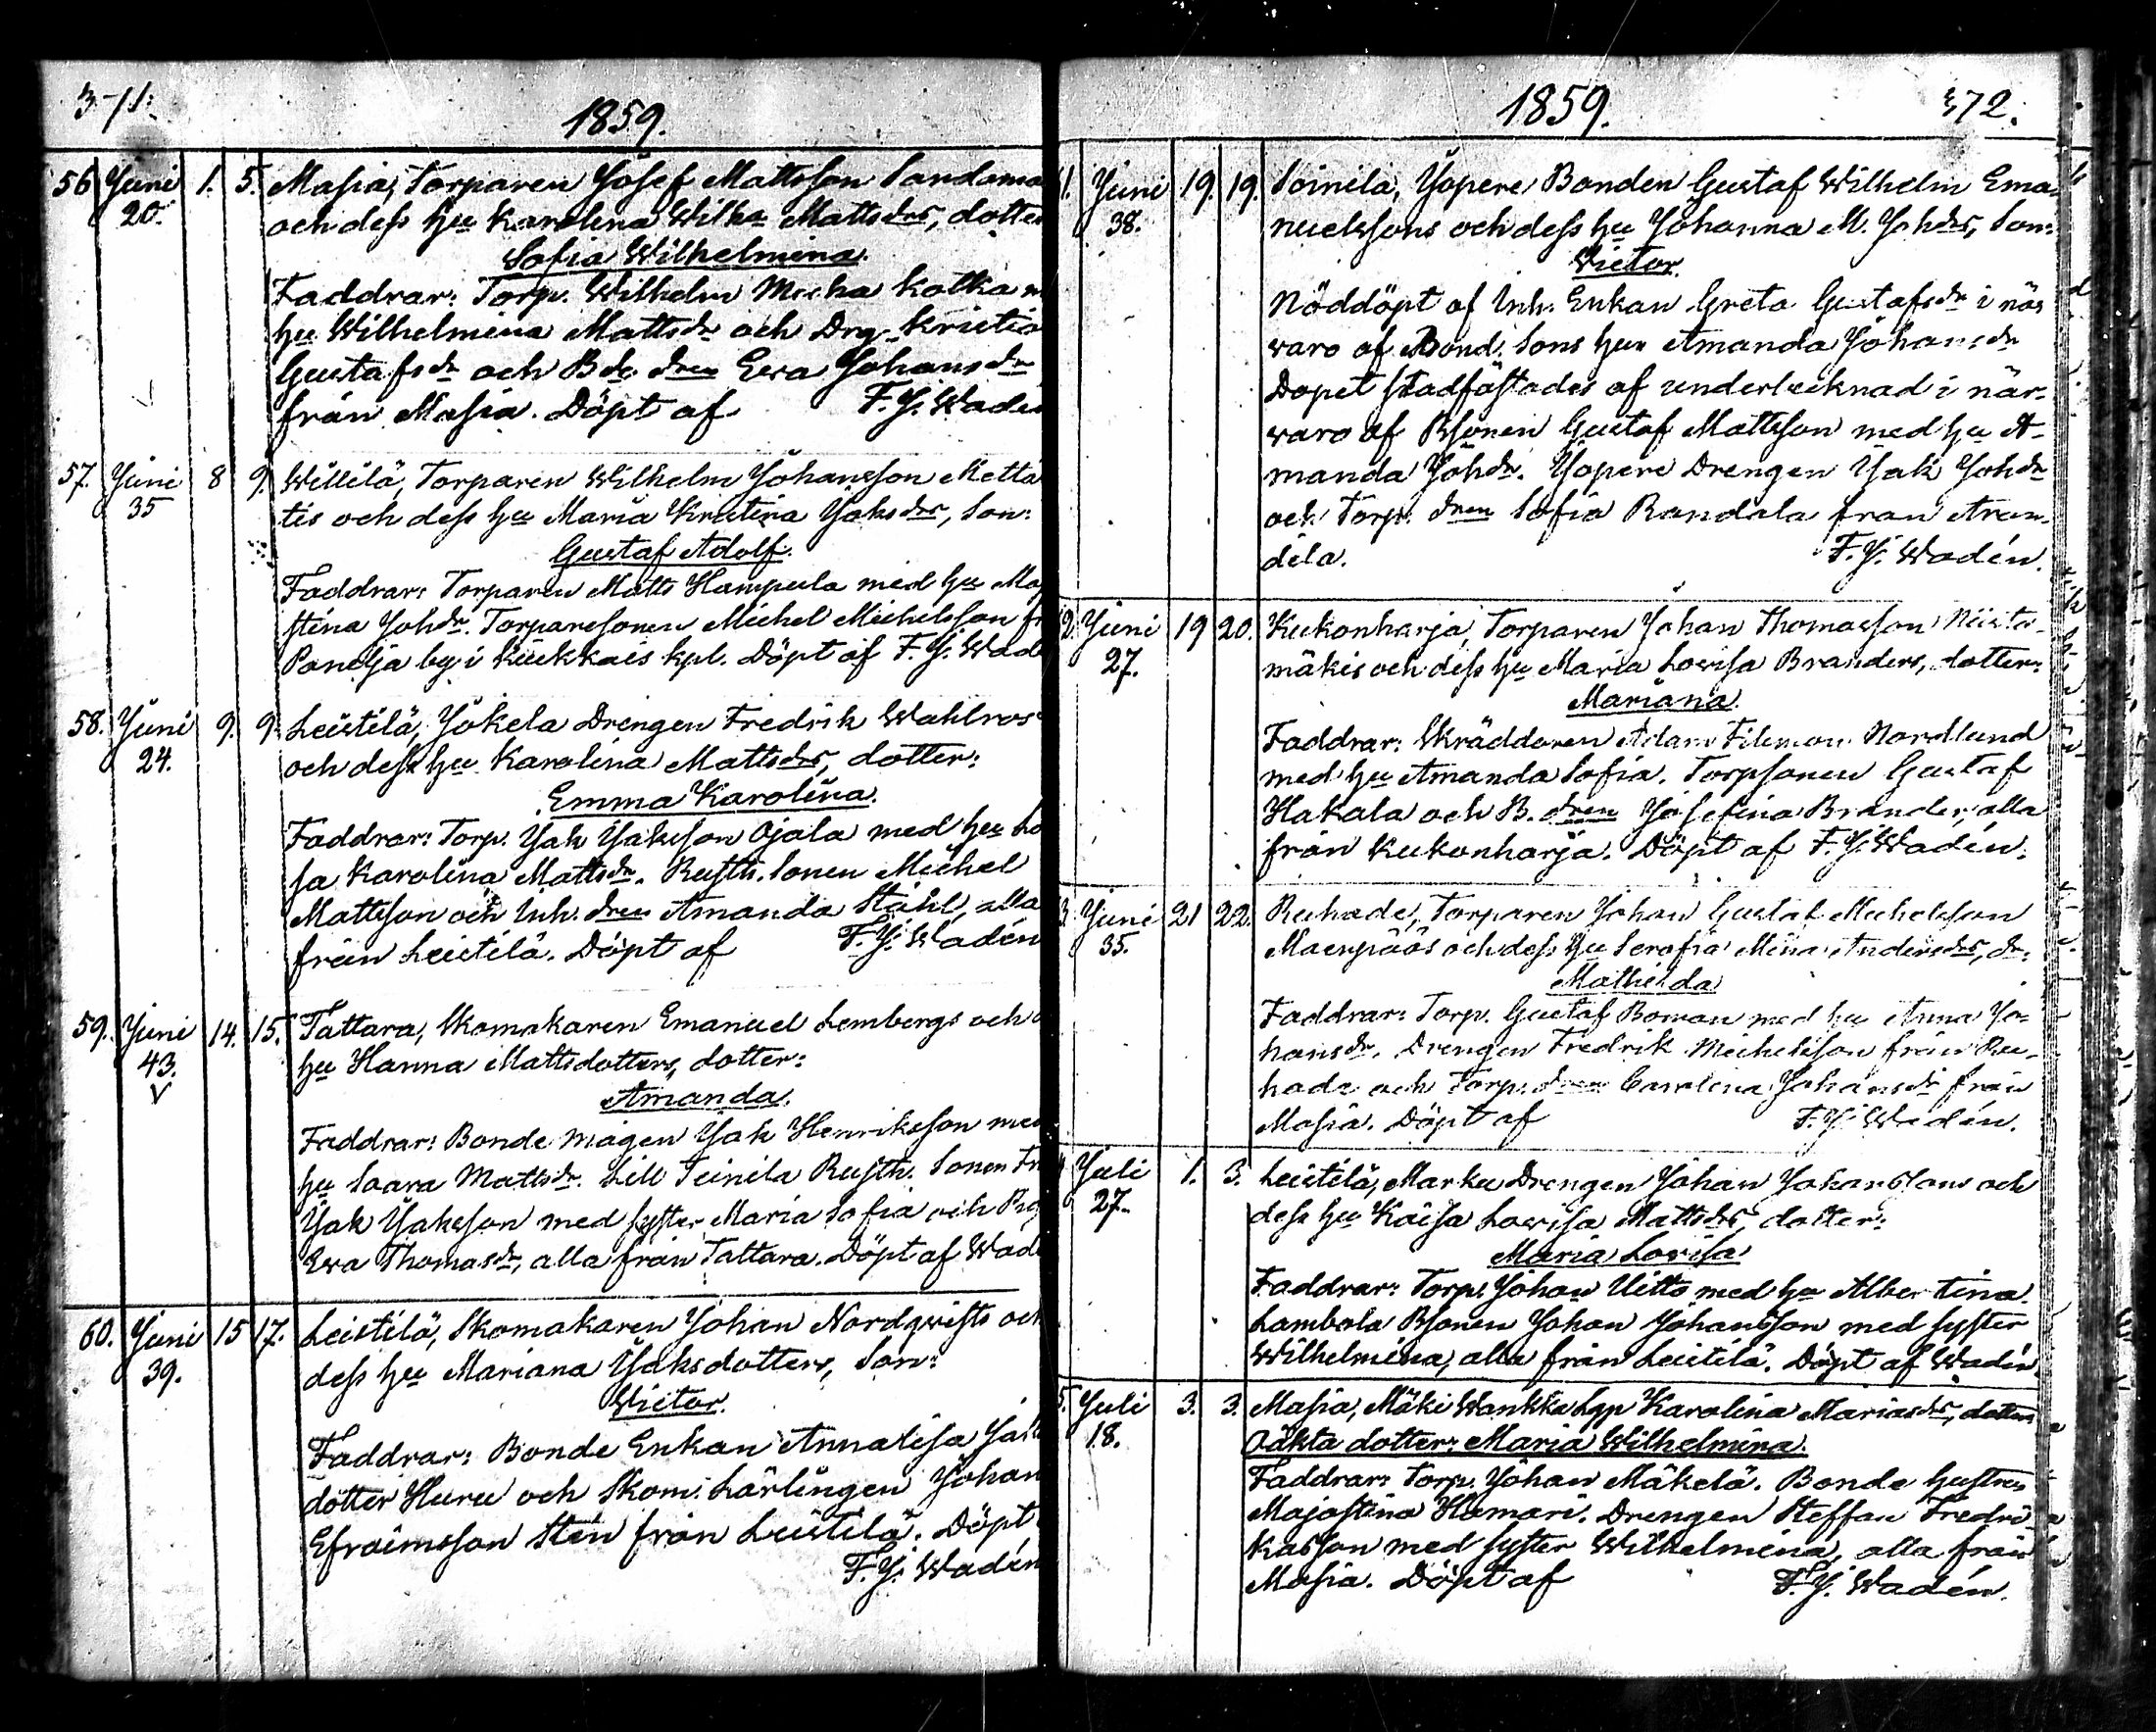 371.
1859.
56 Juni 1. 5. Masia, Torparen Josef Mattsson Sandama
20. och dess hu Karolina Wilha Mattsdrs, dotter
Sofia Wilhelmina.
Faddrar: Torp. Wilhelm Kotka m
hu Wilhelmina Mattsdr och Drg. Kristia
Gustafsdr och Bde dren Ewa Johansdr
från Masia. Döpt af F. J. Wadén
57. Juni 8 9. Willilä, Torparen Wilhelm Johansson Metta
35 tis och dess hu Maria Kristina Jaksdrs, Son:
Gustaf Adolf.
Faddrar: Torparen Matts Hampula med hu Maj
stina Johdr. Torparesonen Michel Michelsson fr
Panelja by i Kiukkais kpl. Döpt af F. J. Wad
58. Juni 9. 9. Leistilä, Jokela Drengen Fredrik Wahlros
24. och dess hu Karolina Mattsdrs, dotter:
Emma Karolina.
Faddrar: Torp. Jak Jaksson Ojala med hu Lo
sa Karolina Mattsdr. Rusth. Sonen Michel
Mattsson och Inh. dren Amanda Ståhl, alla
från Leistilä. Döpt af F. J. Wadén
59. Juni 14. 15. Tattara, Skomakaren Emanuel Lembergs och
43. hu Hanna Mattsdotters, dotter:
V
Amanda.
Faddrar: Bonde Mågen Jak Henriksson med
hu Saara Mattsdr. Lill Seinila Rusth. Sonen
Jak Jaksson med syster Maria Sofia och
Ewa Thomasdr, alla från Tattara. Döpt af Wad
60. Juni 15 17. Leistilä, Skomakaren Johan Nordqvists och
39. dess hu Mariana Jaksdotters, Son:
Victor.
Faddrar: Bonde Enkan Annalisa
dotter Huru och Skom. Lärlingen Johan
Efraimsson Sten från Leistilä. Döpt
F. J. Wadén
1859. 372.
1. Juni 19. 19. Soinila, Yopere Bonden Gustaf Wilhelm Ema-
38. nuelssons och dess hu Johanna M. Johdrs, Son:
Victor.
Nöddöpt af Inh. Enkan Greta Gustafsdr i när
varo af Bond. Sons hun Amanda Johansdr
Dopet stadfästades af undertecknad i när-
varo af Bsonen Gustaf Mattsson med hu A-
manda Johdr. Yopere Drengen Jak Joh
och Torp. dren Sofia Randala från Aran-
dila. F. J. Wadén.
2. Juni 19 20. Kukonharja, Torparen Johan Thomasson Niisto-
27. mäkis och dess hu Maria Lovisa Branders, dotter:
Mariana.
Faddrar: Skräddaren Adam Filemon Nordlund
med hu Amanda Sofia. Torpsonen Gustaf
Hakala och B. dren Josefina Brander, alla
från Kukonharja. Döpt af F. J. Wadén.
3. Juni 21 22. Ruhade, Torparen Johan Gustaf Michelsson
35. Maenpääs och dess hu Serafia Mina Andersdrs, dr:
Mathilda
Faddrar: Torp. Gustaf Boman med hu Anna Jo-
hansdr. Drengen Fredrik Michelsson från Ru-
hade och Torp. dren Carolina Johansdr från
Masia. Döpt af F. J. Wadén.
Juli 1. 3. Leistilä, Marku Drengen Johan Johanssons och
27. dess hu Kaisa Lovisa Mattsdrs, dotter:
Maria Lovisa
Faddrar: Torp. Johan Uitto med hu Albertina.
Lambola Bsonen Johan Johansson med syster
Wilhelmina, alla från Leistilä. Döpt af Wadén.
5. Juli 3. 3. Masia, Mäki Wankka Karolina Mariasdrs, dotters
18. Oäkta dotter: Maria Wilhelmina.
Faddrar: Torp. Johan Mäkelä. Bonde hustrun
Majastina Hamari. Drengen Steffan Fredri-
kasson med syster Wilhelmina, alla från
Masia. Döpt af F. J. Wadén.